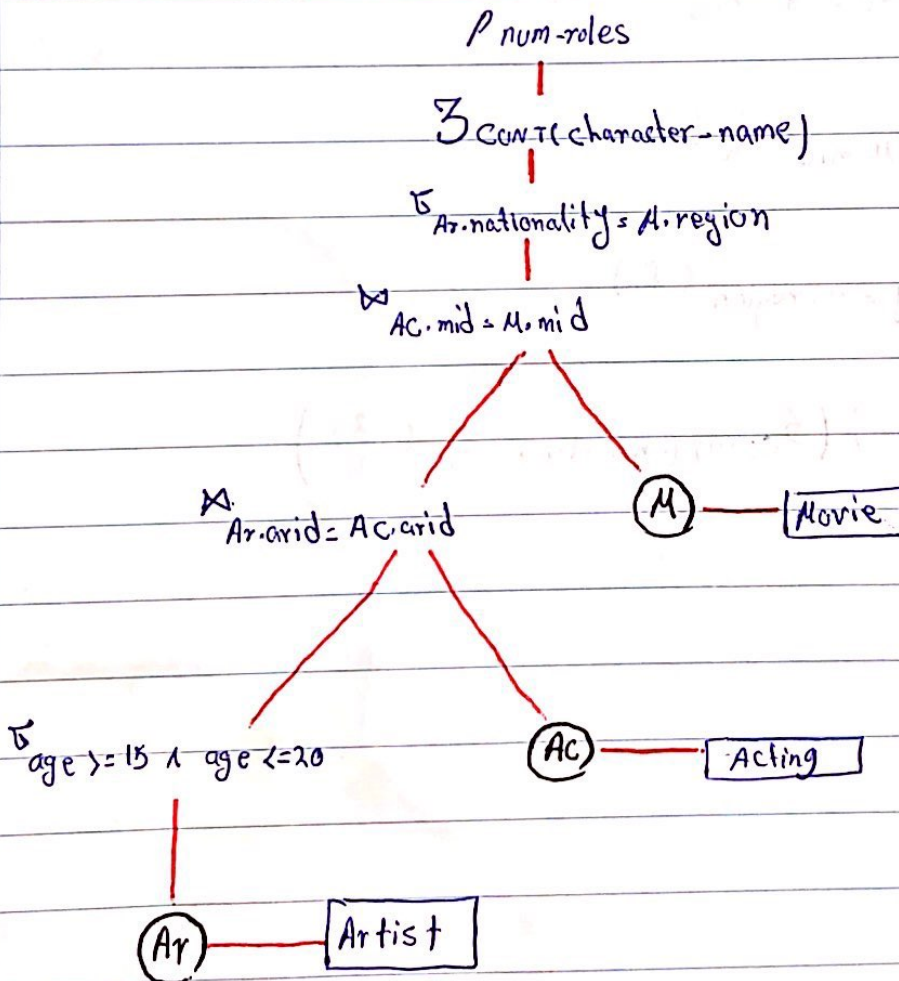 ρ num-roles
ℑ COUNT(character-name)
σ Ar.nationality = M.region
⋈ AC.mid = M.mid
⋈ Ar.arid = AC.arid
M Movie
σ age >= 15 ∧ age <= 20
AC Acting
Ar Artist